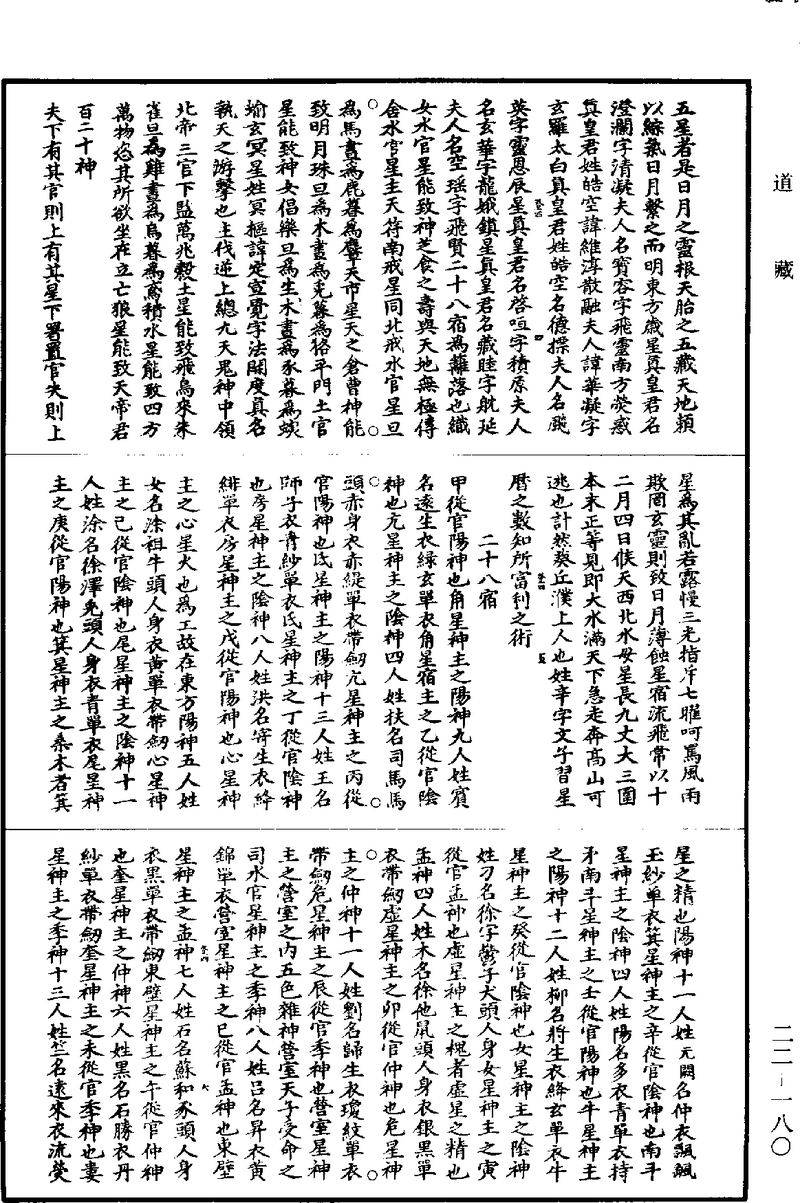 道藏
五星者是日月之靈根天胎之五藏天地賴
以綜氣日月繫之而明東方歲星真皇君名
澄瀾字清凝夫人名寳容字飛靈南方熒惑
真皇君姓皓空諱維淳散融夫人諱華凝字
玄羅太白真皇君姓皓空名德摽夫人名飈
英字靈恩辰星真皇君名啓咺字積原夫人
名玄華字龍娥鎮星真皇君名藏睦字躭延
夫人名空瑶字飛賢二十八宿為籬落也織
女水官星能致神芝食之壽與天地無極傳
舍水官星主天符南戒星同北戒水官星旦
為馬晝為鹿暮為麞天市星天之倉曹神能
致明月珠旦為木晝為兎暮為狢平門土官
星能致神女倡樂旦為生木晝為豕暮為蝡
蝓玄冥星姓冥樞諱定宣覺字法開度真名
執天之游擊也主伐逆上總九天鬼神中領
北帝三官下監萬兆穀土星能致飛烏來朱
雀旦為雞晝為烏暮為鳶積水星能致四方
萬物恣其所欲坐在立亡狼星能致天帝君
百二十神
夫下有其官則上有其星下署置官失則上
星為其亂若露慢三光指斥七曜呵罵風雨
欺罔玄靈則致日月薄蝕星宿流飛常以十
二月四日候天西北水母星長九丈大三圍
本末正等見即大水滿天下急走奔髙山可
逃也計然葵丘濮上人也姓辛字文子習星
曆之數知所富利之術
二十八宿
甲從官陽神也角星神主之陽神九人姓賓
名遠生衣緑玄單衣角星宿主之乙從官陰
神也亢星神主之陰神四人姓扶名司馬馬
頭赤身衣赤緹單衣帶劒亢星神主之丙從
官陽神也氐星神主之陽神十三人姓王名
師子衣青紗單衣氐星神主之丁從官陰神
也房星神主之陰神八人姓洪名寄生衣絳
緋單衣房星神主之戊從官陽神也心星神
主之心星火也為工故在東方陽神五人姓
女名涂祖牛頭人身衣黄單衣帶劒心星神
主之己從官陰神也尾星神主之陰神十一
人姓涂名徐澤兎頭人身衣青單衣尾星神
主之庚從官陽神也箕星神主之桑木者箕
星之精也陽神十一人姓元闕名仲衣飄飄
玉紗單衣箕星神主之辛從官陰神也南斗
星神主之陰神四人姓陽名多衣青單衣持
矛南斗星神主之壬從官陽神也牛星神主
之陽神十二人姓柳名將生衣絳玄單衣牛
星神主之癸從官陰神也女星神主之陰神
姓刁名徐字鬱子犬頭人身女星神主之寅
從官孟神也虚星神主之槐者虚星之精也
孟神四人姓木名徐他鼠頭人身衣銀黒單
衣帶劒虚星神主之卯從官仲神也危星神
主之仲神十一人姓劉名歸生衣瓊紋單衣
帶劒危星神主之辰從官季神也營室星神
主之營室之内五色雜神營室天子受命之
司水官星神主之季神八人姓吕名昇衣黄
錦單衣營室星神主之巳從官孟神也東壁
星神主之孟神七人姓石名蘇和豕頭人身
衣黒單衣帶劒東壁星神主之午從官仲神
也奎星神主之仲神六人姓黒名石勝衣丹
紗單衣帶劒奎星神主之未從官季神也婁
星神主之季神十三人姓竺名遠來衣流熒
二二－一八〇